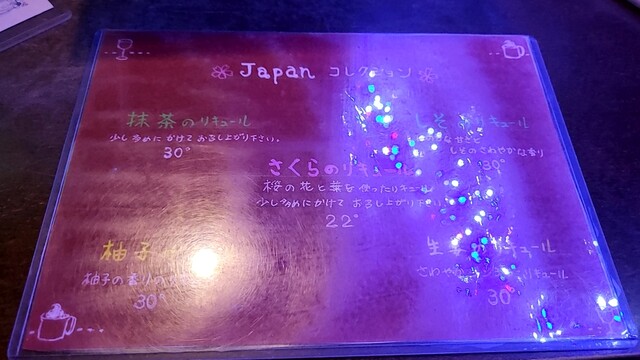 Japan コレクション
抹茶のリキュール
少し多めにかけてお召し上がり下さい。
30°
しそ リキュール
しそのさわやかな香り
30°
さくらのリキュール
桜の花と葉を使ったリキュール
少し多めにかけてお召し上がり下さい
22°
柚子
柚子の香り
30°
生姜のリキュール
さわやか リキュール
30°